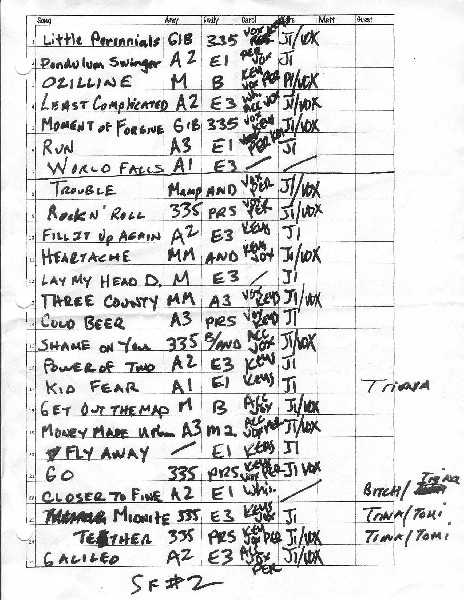 Song Amy Emily Carol Matt Guest
1 Little Perennials GIB 335 VOX JI/VOX
Pendulum Swinger A2 E1 PER VOX JI
OZILLINE M B KEYS VOX PER PI/VOX
LEAST COMPLICATED A2 E3 Whi. ACC VOX JI/VOX
MOMENT OF FORGIVE GIB 335 VOX KEYS JI/VOX
RUN A3 E1 PER KEYS JI
WORLD FALLS A1 E3 — —
TROUBLE MAMP AND VOX PER JI/VOX
ROCK N' ROLL 335 PRS VOX PER JI/VOX
FILL IT UP AGAIN A2 E3 KEYS JI
HEARTACHE MM AND KEYS VOX JI/VOX
LAY MY HEAD D. M E3 / JI
THREE COUNTY MM A3 VOX KEYS JI/VOX
COLD BEER A3 PRS ACC KEYS JI
SHAME ON YOU 335 B/AND ACC VOX JI/VOX
POWER OF TWO A2 E3 KEYS JI
KID FEAR A1 E1 KEYS JI TRINA
GET OUT THE MAP M B ACC VOX JI/VOX
MONEY MADE U A3 M2 ACC VOX PER JI/VOX
FLY AWAY — E1 KEYS JI
GO 335 PRS KEYS VOX PER JI VOX
CLOSER TO FINE A2 E1 Whis. — BITCH/TRINA
MIDNITE 335 E3 KEYS VOX JI TRINA/TOMI
TETHER 335 PRS KEYS VOX PER JI/VOX TRINA/TOMI
GALILEO A2 E3 ACC VOX PER JI/VOX
SF#2